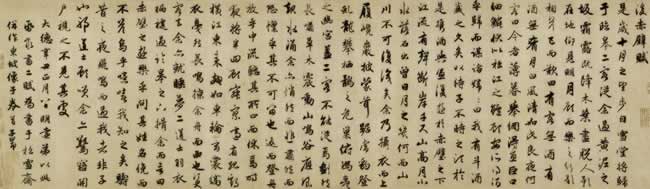 後赤壁賦
是歲十月之望步自雪堂將歸
于臨皋二客從余過黃泥之
坂霜露既降木葉盡脫人影
在地仰見明月顧而樂之行歌
相答已而歎曰有客無酒有
酒無肴月白風清如此良夜何
客曰今者薄暮舉網得魚巨口
細鱗狀如松江之鱸顧安所得酒
乎歸而謀諸婦婦曰我有斗酒
藏之久矣以待子不時之須於
是攜酒與魚復遊於赤壁之下
江流有聲斷岸千尺山高月小
水落石出曾日月之幾何而江山
不可復識矣余乃攝衣而上
履巉巖披蒙茸踞虎豹登
虬龍攀栖鶻之危巢俯馮夷
之幽宮蓋二客不能從焉劃然
長嘯草木震動山鳴谷應風
起水涌余亦悄然而悲肅然而
恐凜乎其不可留也返而登舟
放乎中流聽其所止而休焉時
夜將半四顧寂寥適有孤鶴
橫江東來翅如車輪玄裳縞
衣戛然長鳴掠余舟而西也須臾
客去余亦就睡夢二道士羽衣
蹁躚過臨皋之下揖余而言曰
赤壁之遊樂乎問其姓名俛而
不答嗚呼噫嘻我知之矣疇
昔之夜飛鳴而過我者非子
也耶道士顧笑余亦驚寤開
戶視之不見其處
大德辛丑正月八日明遠弟以此
紙求書二賦為書于松雪齋
併作東坡像于卷首子昂